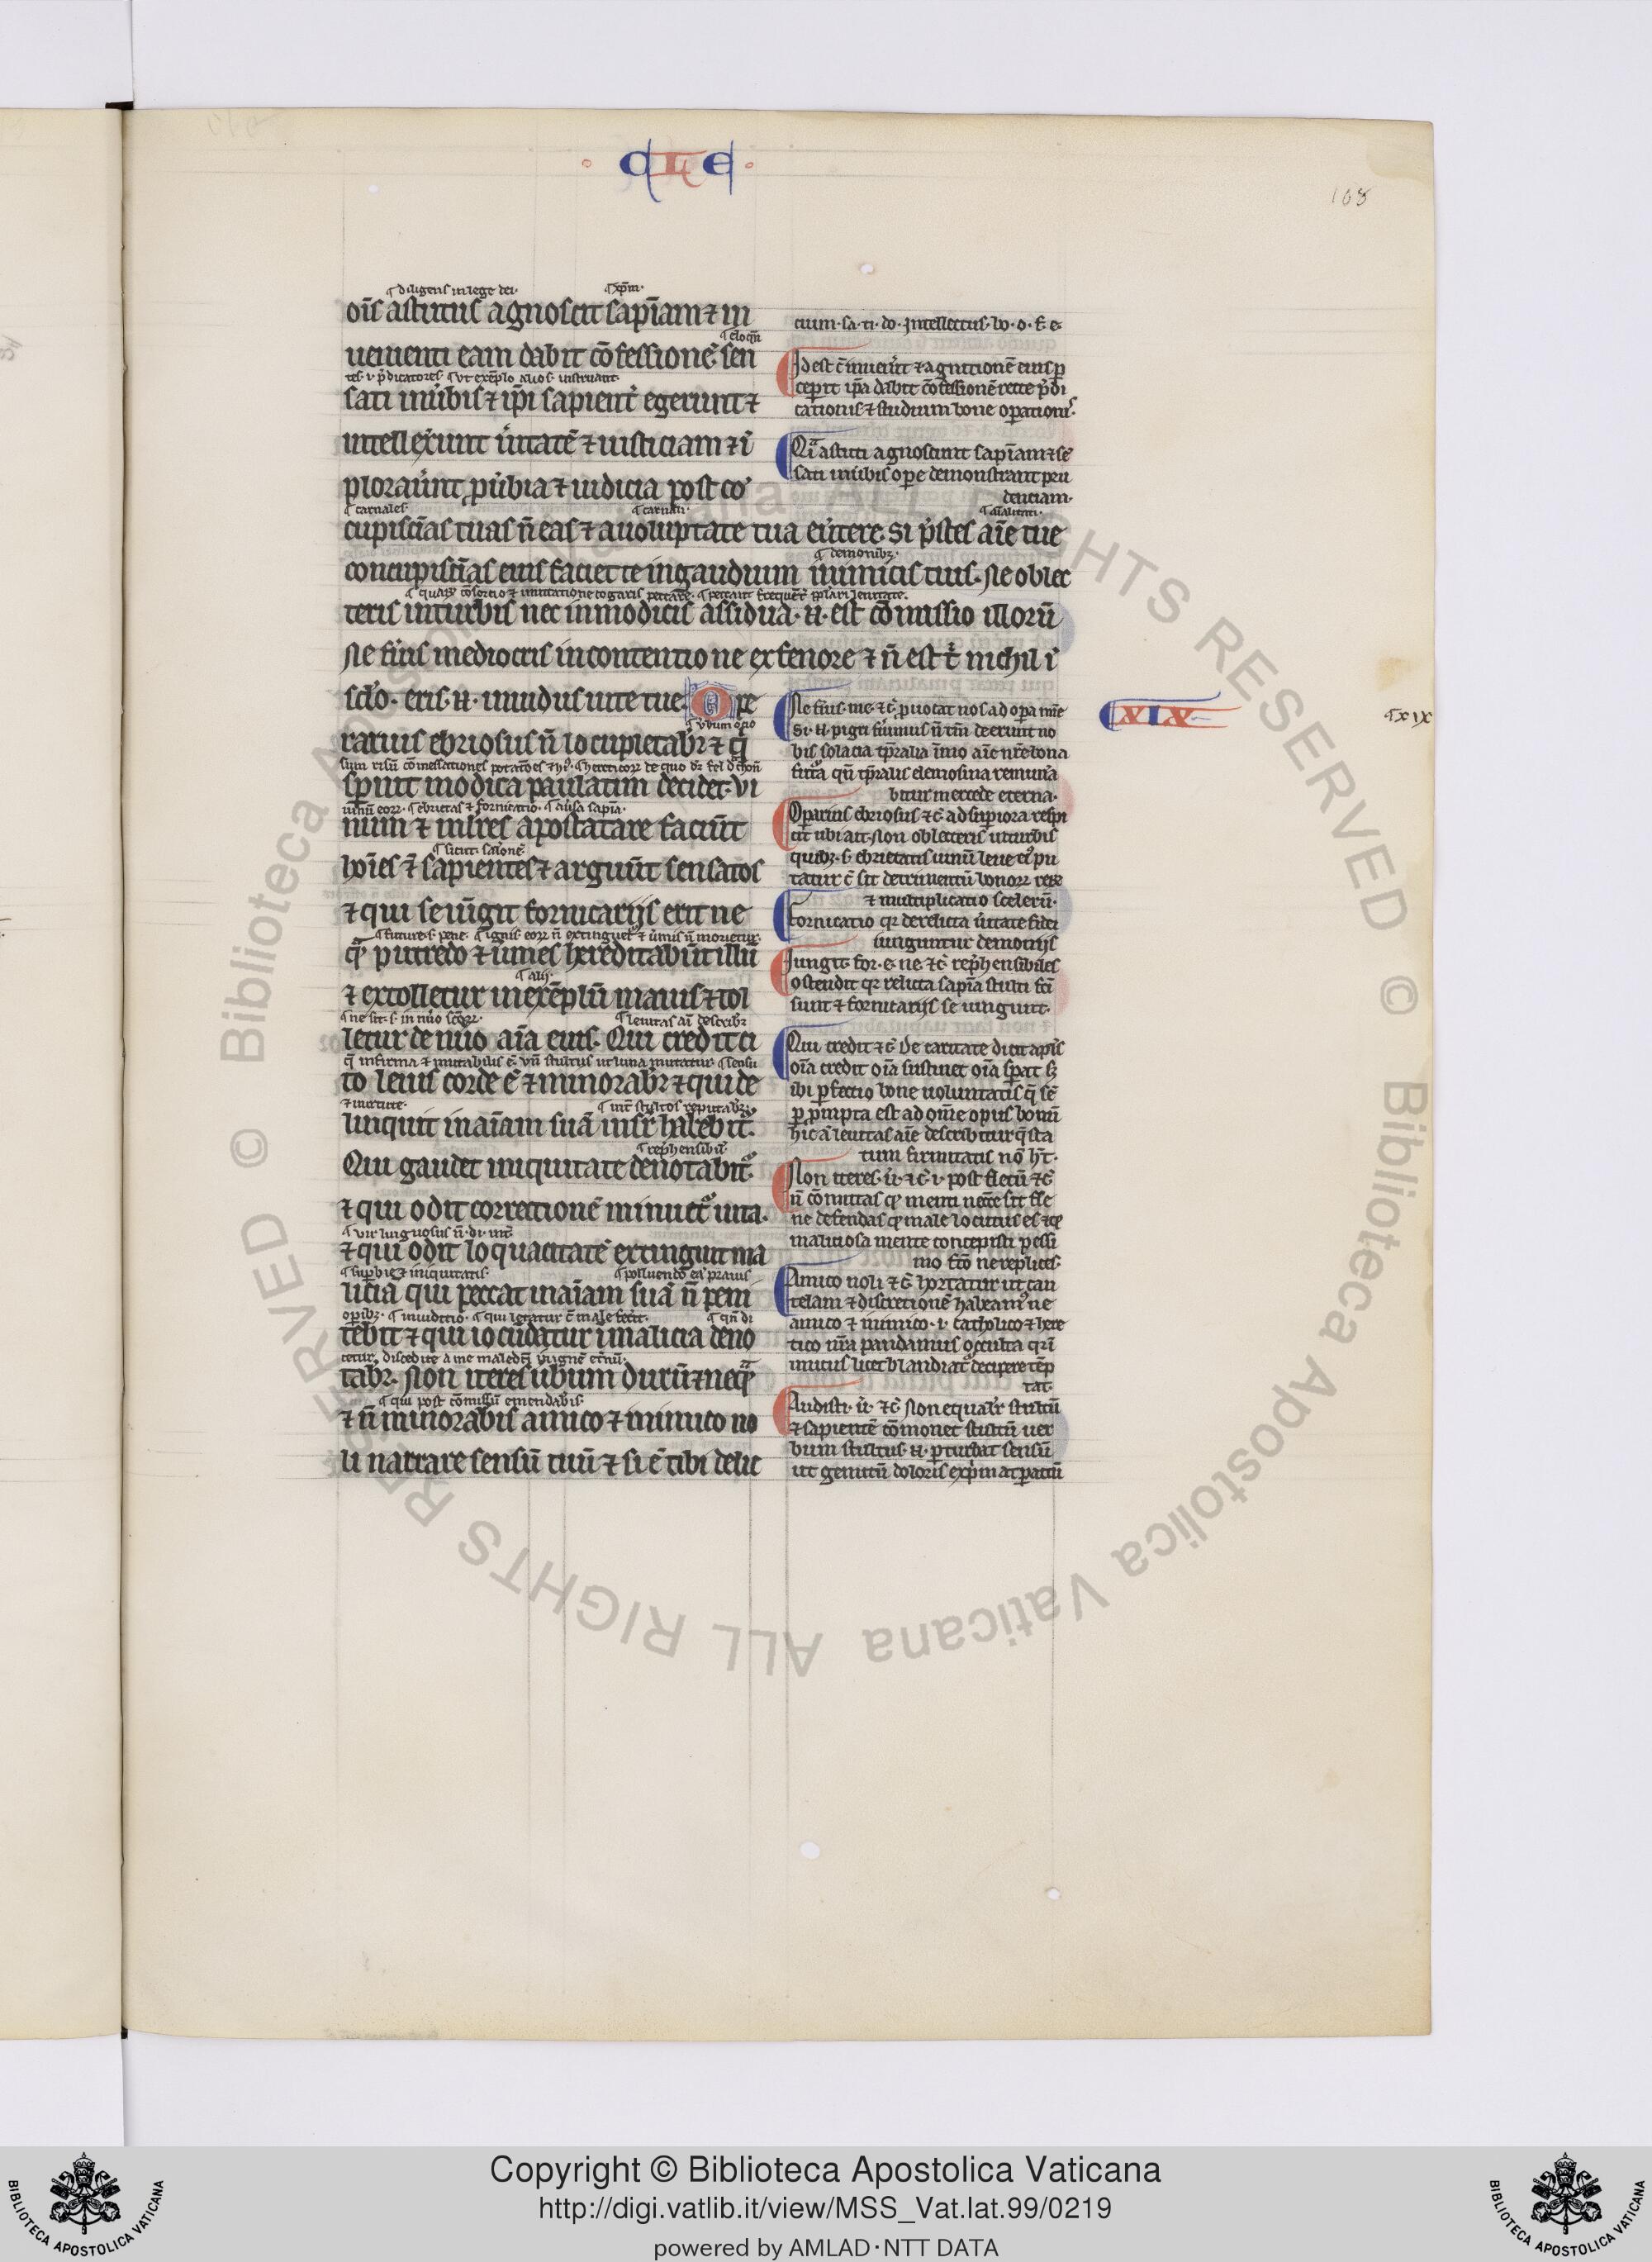 C L E
108
¶ diligens in lege dei· ¶ xp̄m·
oīs astutus agnoscit sapīam ⁊ in
¶ eloqn̄
uenienti eam dabit cōfessionē· sen
sati in ũbis ⁊ ip̄i sapient̾ egerunt ⁊
intellex̾unt ũitatē ⁊ iusticiam ⁊ ī
plorau̾unt ꝓũbia ⁊ iudicia post cō
¶ carnales· ¶ carnali·
cupiscīas tuas n̄ eas ⁊ a uoluptate tua au̾tere· Si p̾stes aīe tue
¶ demonibꝫ·
concupiscīas eius faciet te in gaudium inimicis tuis· Ne oblec
teris in turbis nec in modicis assidua· n̄· est cōmissio illorū
Ne fu̾is mediocris in contentione ex fenore ⁊ n̄ est t̾ nichil ī
sclo· eris· n̄· inuidus uite tue· Ope
rarius ebriosus n̄ locupletabr̄ ⁊ q̄
sp̾nit modica paulatim decidet· Vi
num ⁊ mlr̄es apostatare faciūt
hoīes ⁊ sapientes ⁊ arguūt sensatos
⁊ qui se iūgit fornicarijs erit ne
quā putredo ⁊ ũmes hereditabūt illū
¶ alij·
⁊ extolletur in exēplū maius ⁊ tol
letur de nūo aīa eius· Qui credit ci
to leuis corde ē ⁊ minorabr̄ ⁊ qui de
⁊ uirtute·
linquit in aīam suā insr̄ habebit̾·
¶ rep̾hensibil̾
Qui gaudet iniquitate denotabit̾·
⁊ qui odit correctionē minuet̾ uita·
⁊ qui odit loquacitatē extinguit ma
¶ sup̾bie ⁊ iniquitatis·
liciā qui peccat in aīam suā n̄ peni
tebit ⁊ qui iocūdatur ī malicia deno
tabr̄· Non iteres ũbum durū ⁊ neq̄
¶ qui post cōmissū emendabis·
⁊ n̄ minorabis amico ⁊ inimico no
li narrare sensū tuū ⁊ si ē tibi delic
cium· sa· ti· do· Intellectus· bo· o· f· e·
Id est c̄ inuen̾it ⁊ agnitionē eius ꝑ
ceperit ip̄a dabit cōfessionē recte p̾di
cationis ⁊ studium bone oꝑationis·
Qͥa astuti agnoscunt sapīam ⁊ sē
sati in ũbis oꝑe demonstrant pru
denciam·
Ne fu̾is· me· ⁊c̄ ꝓuocat nos ad oꝑa mīe
Si· n̄· pigri fu̾imus n̄ tm̄ deerunt no
bis solacia tꝑalia īmo aīe nr̄e bona
futura qn̄ tꝑalis elemosina remun̾a
bitur mercede eterna·
Oꝑarius ebriosus ⁊c̄ ad suꝑiora respi
cit ubi ait· Non oblecteris in turbis
quibꝫ· s· ebrietatis uinū leue cū pu
tatur c̄ sit detrimentū bonoꝝ reꝝ
⁊ multiplicatio scelerū·
Fornicatio qꝛ derelicta ũitate fidei
iunguntur demonijs
Iungit for· e· ne· ⁊c̄ rep̾hensibiles
ostendit qꝛ relicta sapīa stulti fc̄i
sunt ⁊ fornicarijs se iungunt·
Qui credit ⁊c̄ De caritate dicit apls̄
oīa credit oīa sustinet oīa sꝑat sꝫ
ibi ꝑfectio bone uoluntatis q̄ sē
ꝑ ꝓmpta est ad om̄e opus bonū
hic ā leuitas aīe describitur q̄ sta
tum firmitatis nō ht̄·
Non iteres· ũ· ⁊c̄· i· post fletū ⁊c̄
n̄ cōmittas qͦ menti nec̄e sit fle
ne defendas qͦ male locutus es ⁊ qͦ
maliciosa mente concepisti pessi
mo fc̄o ne replices·
Amico noli ⁊c̄ hortatur ut cau
telam ⁊ discretionē habeam̾ ne
amico ⁊ inimico· i· catholico ⁊ here
tico nr̄a pandamus occulta qꝛ ī
imicus licet blandiat̾ decipere tēp
tat·
Audisti· ũ· ⁊c̄ Non equalr̄ stultū
⁊ sapientē cōmonet stultū uer
bum stultus· n̄· ꝑturbat sensū
ut genitū doloris exp̾mat ꝑatū
XIX
¶ xix
Copyright © Biblioteca Apostolica Vaticana
http://digi.vatlib.it/view/MSS_Vat.lat.99/0219
powered by AMLAD·NTT DATA
BIBLIOTECA APOSTOLICA VATICANA
BIBLIOTECA APOSTOLICA VATICANA
© Biblioteca Apostolica Vaticana ALL RIGHTS RESERVED © Biblioteca Apostolica Vaticana ALL RIGHTS RESERVED